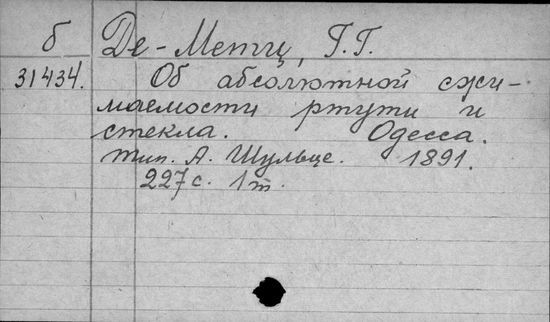 б Де-Метц, Г.Г.
31434. Об абсолютной сжи-
маемости ртути и
стекла. Одесса.
тип. А. Шульце. 1891.
227 с. 1 т.